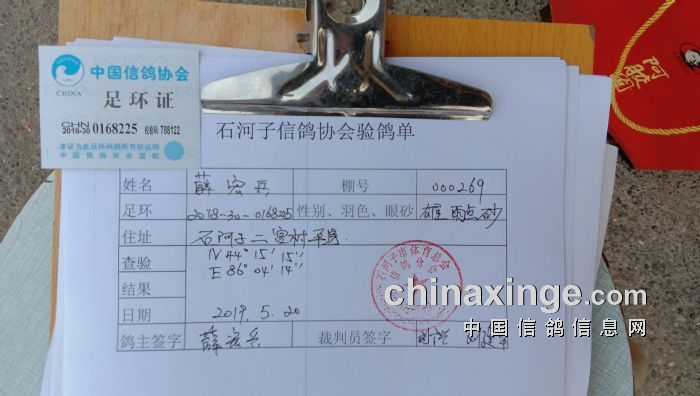 中国信鸽协会
CHINA
足环证
CHN
2018-30 0168225 校验码:788122
本证为此足环鸽所有权证明
中国信鸽协会监制
石河子信鸽协会验鸽单
姓名 薛宏兵 棚号 000269
足环 2018-30-0168225 性别、羽色、眼砂 雄 雨点 砂
住址 石河子二宫村平房
查验 N 44° 15' 15"
E 86° 04' 14"
结果
日期 2019.5.20
石河子市体育总会
信鸽分会
鸽主签字 薛宏兵 裁判员签字
chinaxinge.com
中国信鸽信息网